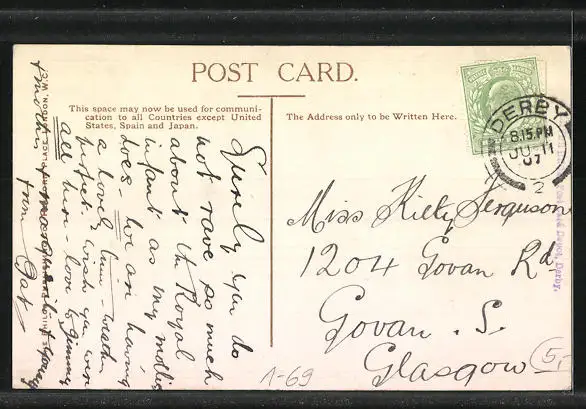 POST CARD.
This space may now be used for communi-
cation to all Countries except United
States, Spain and Japan.
The Address only to be Written Here.
DERBY
8.15 PM
JU 11
07
2
Surely you do
not rave so much
about the Royal
infant as my mother
does - we are having
a lovely time - weather
perfect. wish you were
all here - love to Jimmy
& mother &
from
Miss Kitty Ferguson
1204 Govan Rd.
Govan. S.
Glasgow
1-69
5,-